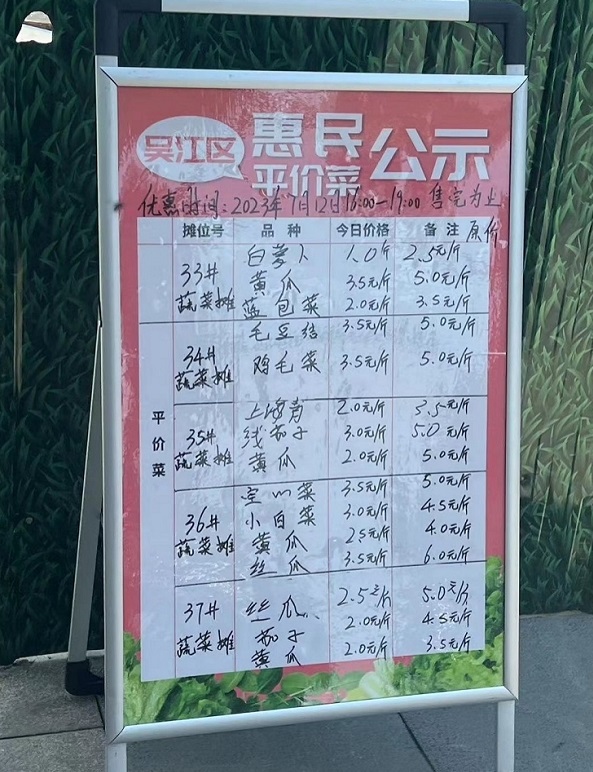 吴江区 惠民平价菜 公示
优惠时间:2023年7月12日16:00—19:00 售完为止
摊位号 品种 今日价格 备注 原价
平价菜
33# 蔬菜摊
白萝卜 1.0/斤 2.5元/斤
黄瓜 3.5元/斤 5.0元/斤
包菜 2.0元/斤 3.5元/斤
34# 蔬菜摊
毛豆结 3.5元/斤 5.0元/斤
鸡毛菜 3.5元/斤 5.0元/斤
35# 蔬菜摊
上海青 2.0元/斤 3.5元/斤
线茄子 3.0元/斤 5.0元/斤
黄瓜 2.0元/斤 5.0元/斤
36# 蔬菜摊
空心菜 3.5元/斤 5.0元/斤
小白菜 3.0元/斤 4.5元/斤
黄瓜 2.5元/斤 4.0元/斤
丝瓜 3.5元/斤 6.0元/斤
37# 蔬菜摊
丝瓜 2.5元/斤 5.0元/斤
茄子 2.0元/斤 4.5元/斤
黄瓜 2.0元/斤 3.5元/斤